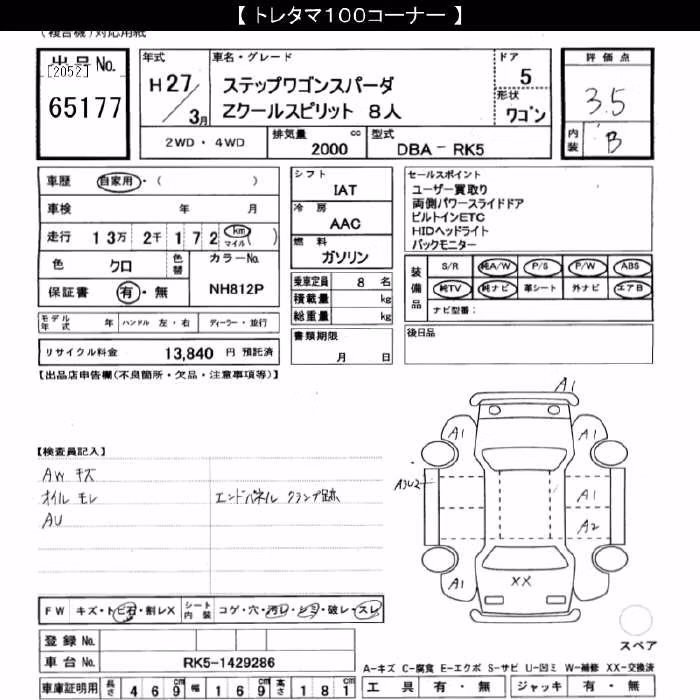 【 トレタマ100コーナー 】
(複合機)対応用紙
出品No.
[2052]
65177
年式
H27/3月
車名・グレード
ステップワゴンスパーダ
Zクールスピリット 8人
ドア
5
形状
ワゴン
評価点
3.5
内装
B
2WD・4WD
排気量
2000
cc
型式
DBA-RK5
車歴
自家用・( )
車検 年 月
走行 13万 2千 172 km マイル ( )
色 クロ
色替
カラーNo.
NH812P
保証書 有・無
シフト
IAT
冷房
AAC
燃料
ガソリン
乗車定員 8 名
積載量 kg
総重量 kg
セールスポイント
ユーザー買取り
両側パワースライドドア
ビルトインETC
HIDヘッドライト
バックモニター
装備品
S/R 純A/W P/S P/W ABS
純TV 純ナビ 革シート 外ナビ エアB
ナビ型番:
モデル年式 年 ハンドル 左・右 ディーラー・並行
リサイクル料金 13,840 円 預託済
書類期限
月 日
後日品
【出品店申告欄(不良箇所・欠品・注意事項等)】
【検査員記入】
AW キズ
オイル モレ
エンドパネル クランプ跡
AU
A1
A1
A1
A3U2
A1
A2
A1
A1
XX
FW キズ・トビ石・割レX
シート内装 コゲ・穴・汚レ・シミ・破レ・スレ
スペア
登録No.
車台No. RK5-1429286
A-キズ C-腐食 E-エクボ S-サビ U-凹ミ W-補修 XX-交換済
車庫証明用 長さ 469cm 幅 169cm 高さ 181cm
工具 有・無 ジャッキ 有・無